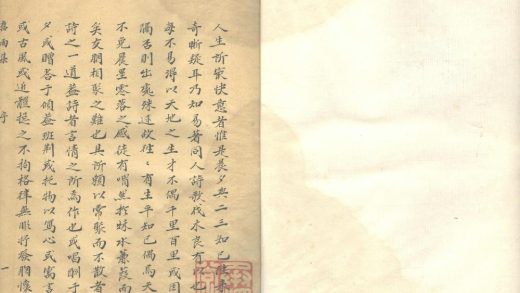 人生所最快意者惟是晨夕與二三知己
奇晰疑耳乃知易著同人詩歌伐木良有以也
每不易得以天地之生才不偶千里百里或因
隔否則出處殊途改往往有生平知己偶為天
不免晨星寥落之感徒有喟然於秋水蒹葭而
矣交朋相聚之難也其所賴以常聚而不散者
詩之一道蓋詩者言情之所為作也或唱酬于
夕或贈答于傾蓋班荆或托物以寫心或寓言
或古風或近體挺之不拘格律無非抒發胸懷
舊雨集 序 一